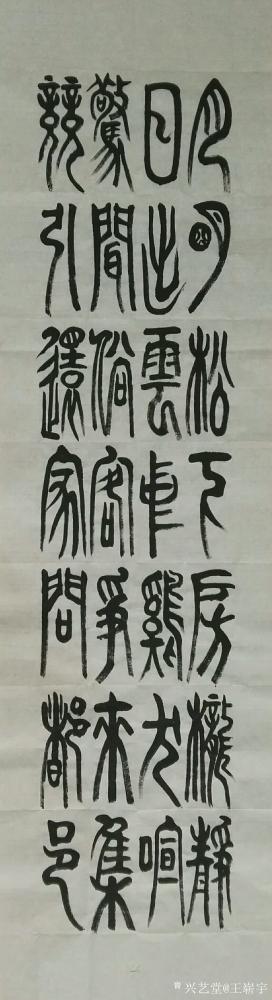 月朙松下房櫳靜
日出雲中雞犬喧
驚聞俗客爭來集
競引還家問都邑
兴艺堂@王崭宇